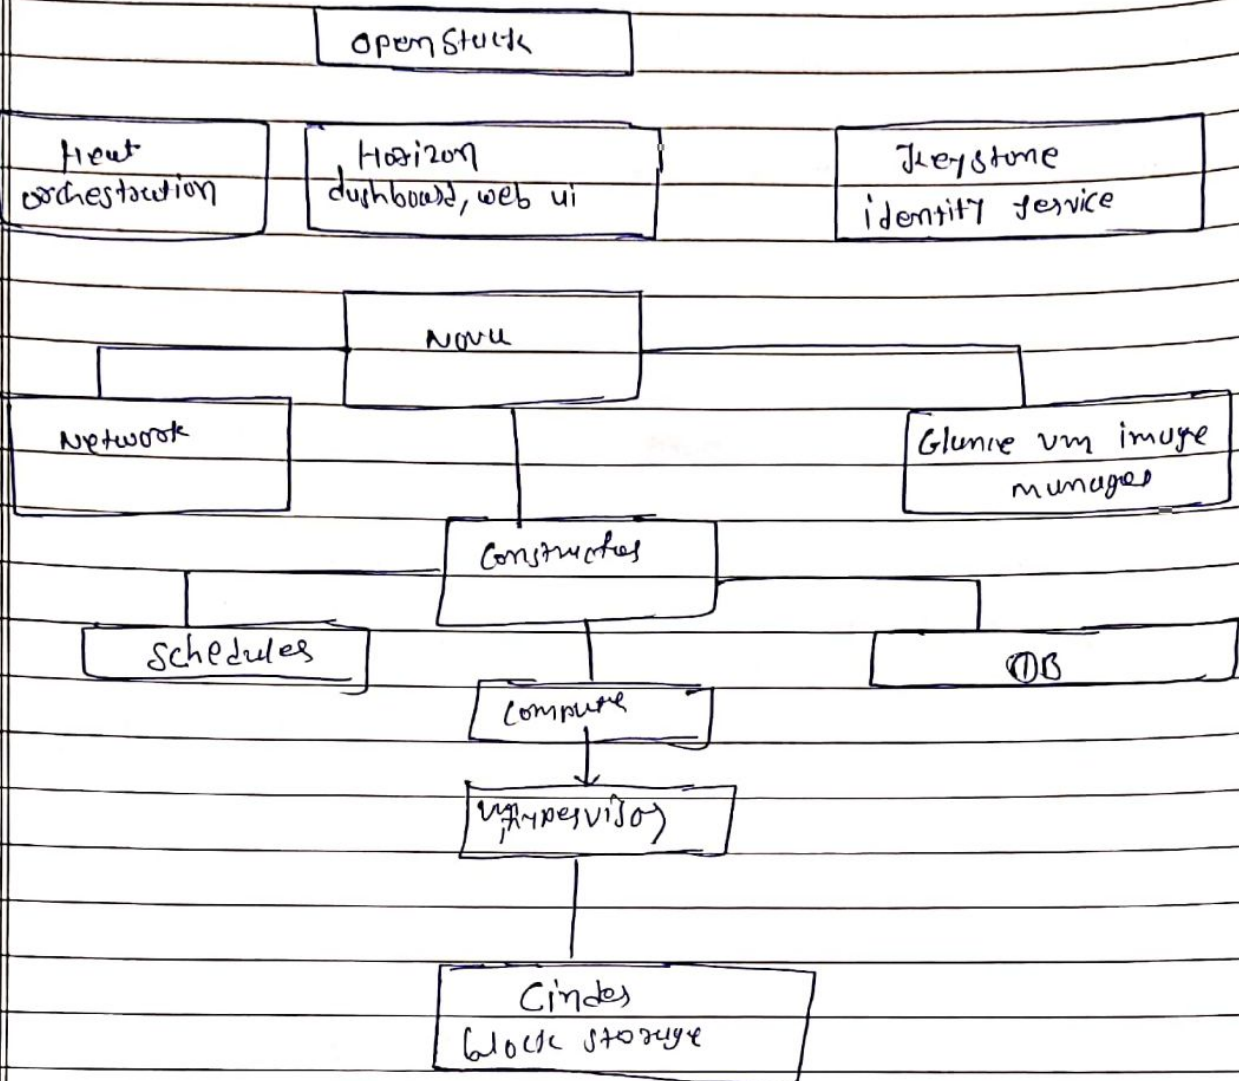 Openstack
Heat
orchestration
Horizon
dashboard, web ui
Keystone
identity service
Nova
Network
Glance vm image
manager
Constructer
Scheduler
DB
Compute
vm, hypervisor
Cinder
block storage